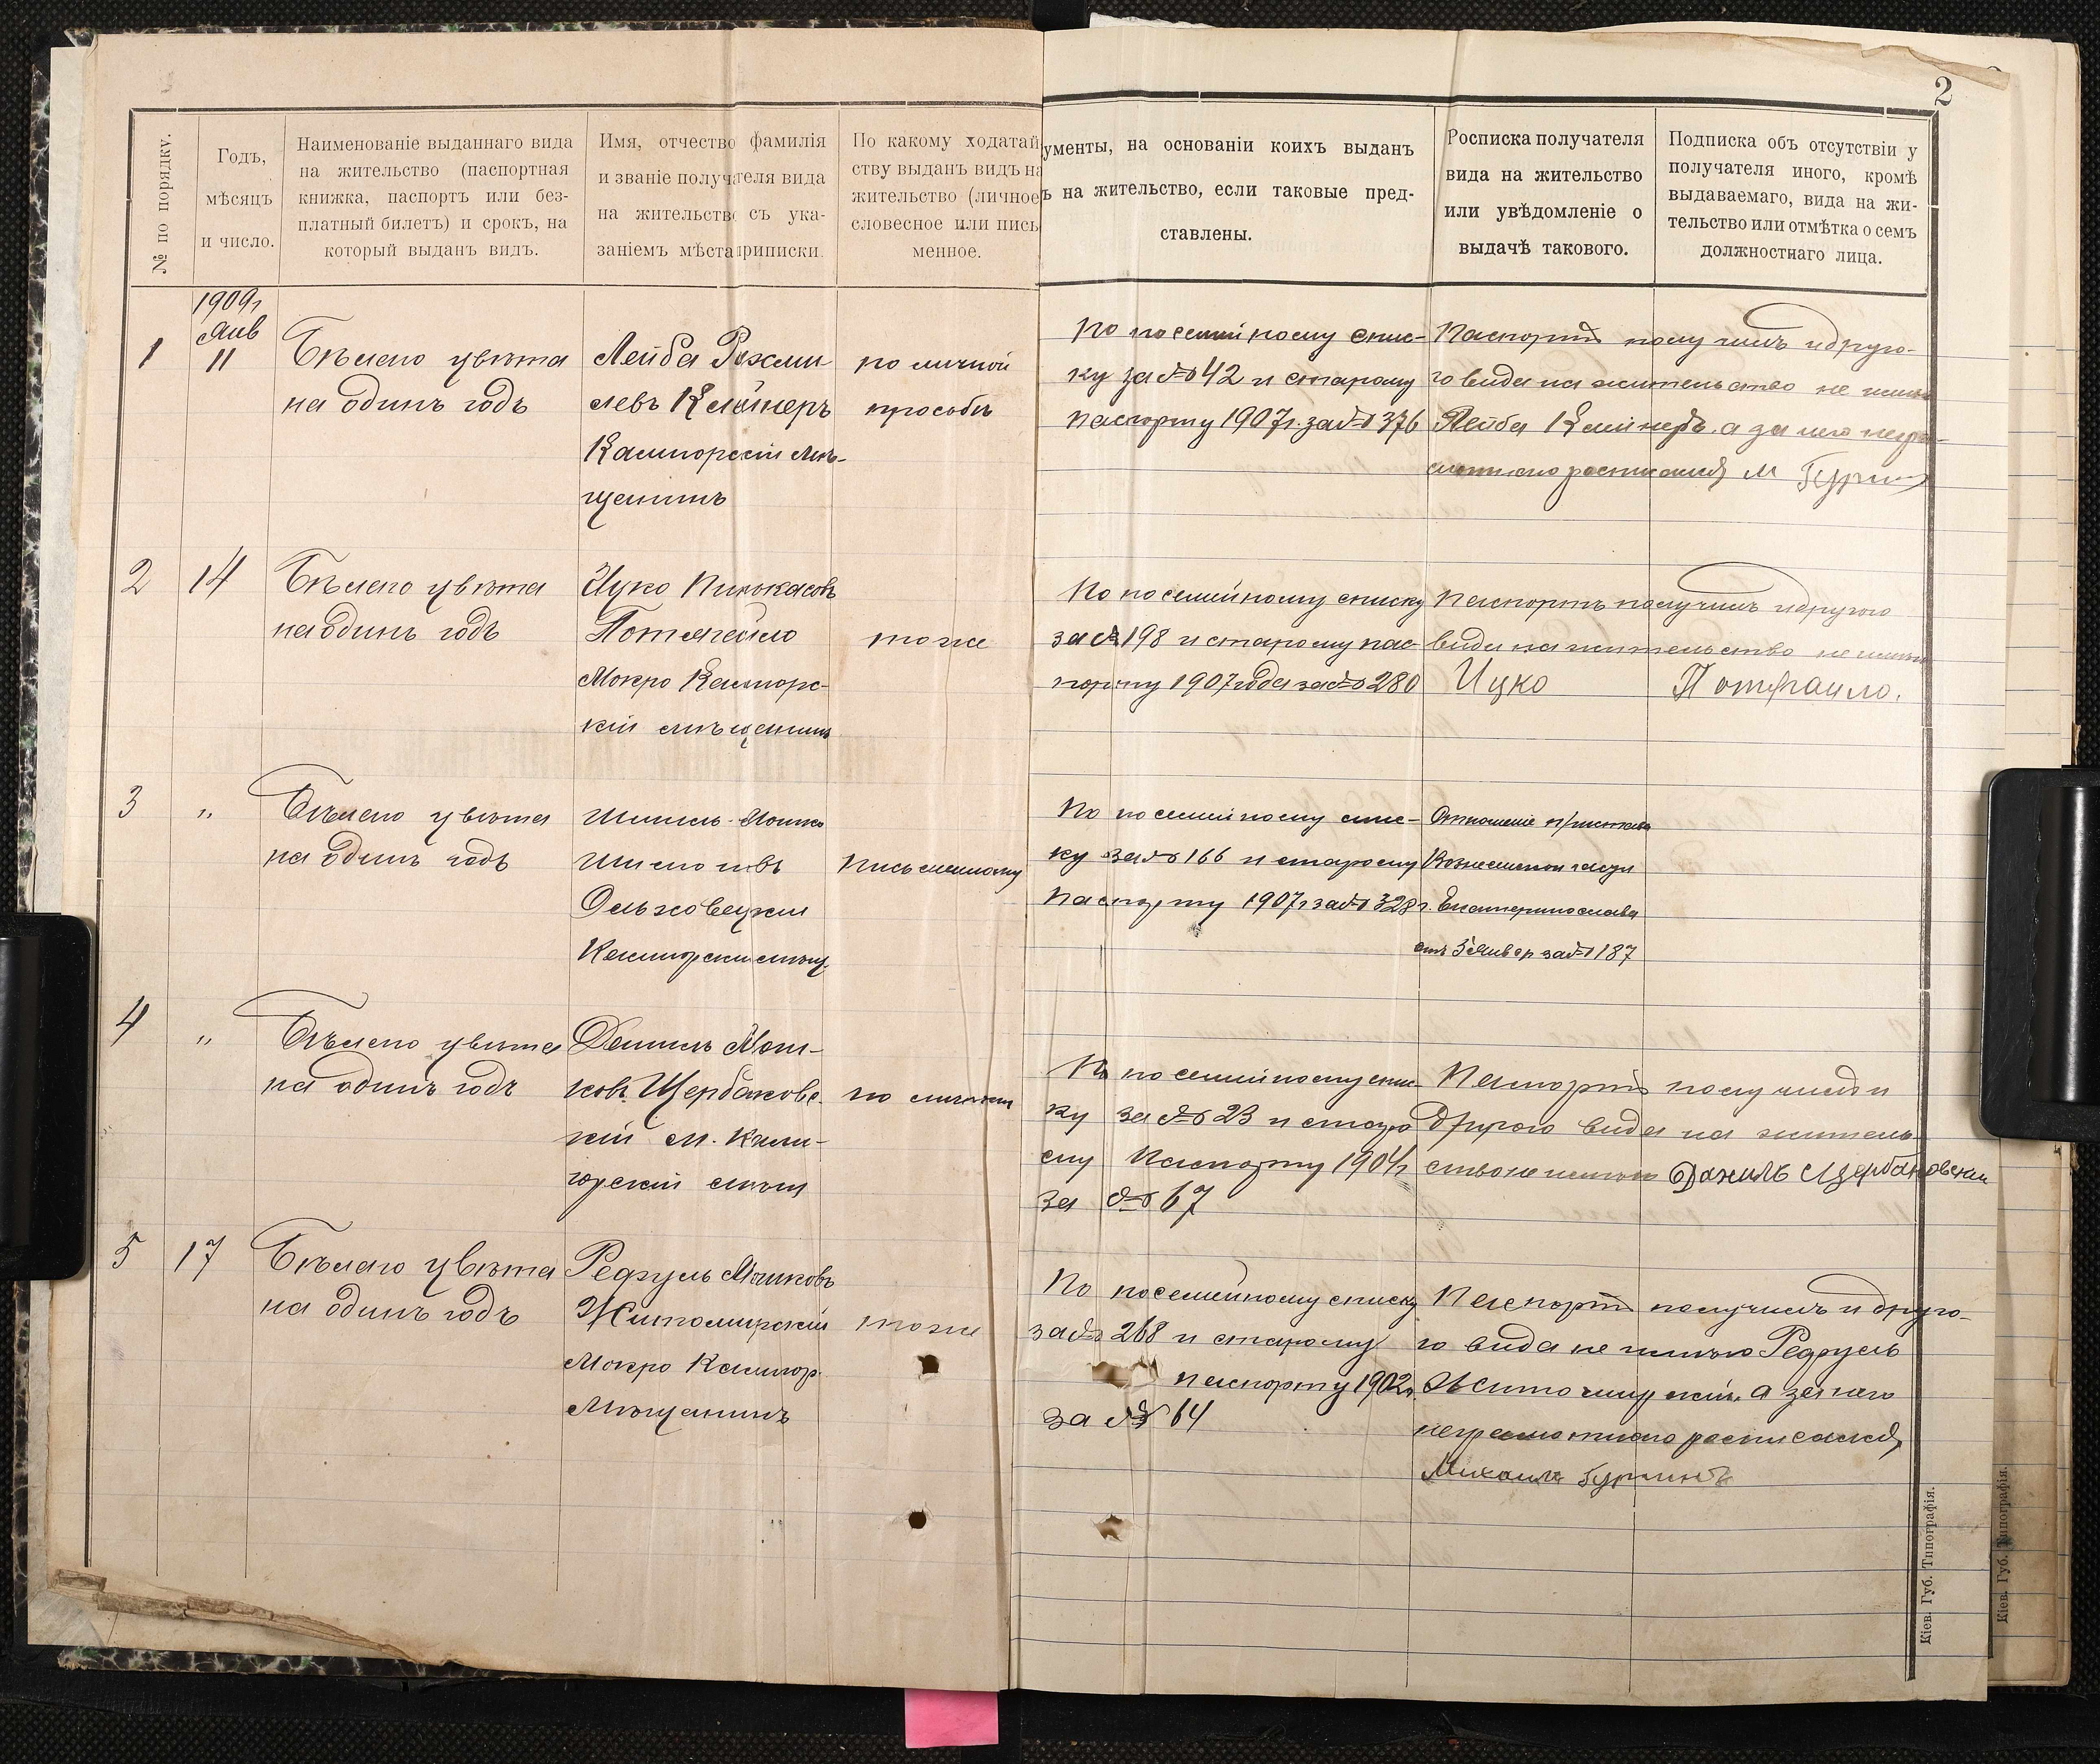 2
№ по порядку.
Годъ,
мѣсяцъ
и число.
Наименованіе выданнаго вида
на жительство (паспортная
книжка, паспортъ или без-
платный билетъ) и срокъ, на
который выданъ видъ.
Имя, отчество фамилія
и званіе получателя вида
на жительство съ ука-
заніемъ мѣста приписки.
По какому ходатай
ству выданъ видъ на
жительство (личное
словесное или пись
менное.
ументы, на основаніи коихъ выданъ
ъ на жительство, если таковые пред-
ставлены.
Росписка получателя
вида на жительство
или увѣдомленіе о
выдачѣ такового.
Подписка объ отсутствіи у
получателя иного, кромѣ
выдаваемаго, вида на жи-
тельство или отмѣтка о семъ
должностнаго лица.
1909г
Янв
1
11
Бѣлаго цвѣта
на одинъ годъ
Лейба Рахми
левъ Клейнеръ
Калигорскій мѣ-
щанинъ
по личной
просьбѣ
По посемейному спис-
ку за № 42 и старому
паспорту 1907г. за № 376
Паспортъ получилъ и друго-
го вида на жительство не имѣю
Лейба Клейнеръ, а за него негра-
мотнаго росписался М
2
14
Бѣлаго цвѣта
на одинъ годъ
Ицко Пинькасовъ
Мокро Калигорс-
кій мѣщанинъ
тоже
По посемейному списку
за № 198 и старому пас-
порту 1907 года за № 280
Паспортъ получилъ и другого
вида на жительство не имѣю
Ицко
3
"
Бѣлаго цвѣта
на одинъ годъ
Ольховецкій
Калигорскій мѣщ.
письменному
По посемейному спис-
ку за № 166 и старому
паспорту 1907г за № 328
Отношеніе пристава
Екатеринослава
отъ 5 Январ за № 187
4
"
Бѣлаго цвѣта
на одинъ годъ
Данилъ Мош-
ковъ Щербаковс-
кій М. Кали-
горскій мѣщ
по личной
По посемейному спис-
ку за № 23 и старо
му паспорту 1904г
за № 67
Паспортъ получилъ и
другого вида на житель-
ство не имѣю Данилъ Щербаковскій
5
17
Бѣлаго цвѣта
на одинъ годъ
Рефуль Мошковъ
Житомирскій
Мокро Калигор.
Мѣщанинъ
тоже
По посемейному списку
за № 268 и старому
паспорту 1902г.
за № 64
Паспортъ получилъ и друго-
го вида не имѣю Рефуль
Житомирскій, а за него
неграмотнаго росписался
Михаилъ
Кіев. Губ. Типографія.
Кіев. Губ. Типографія.